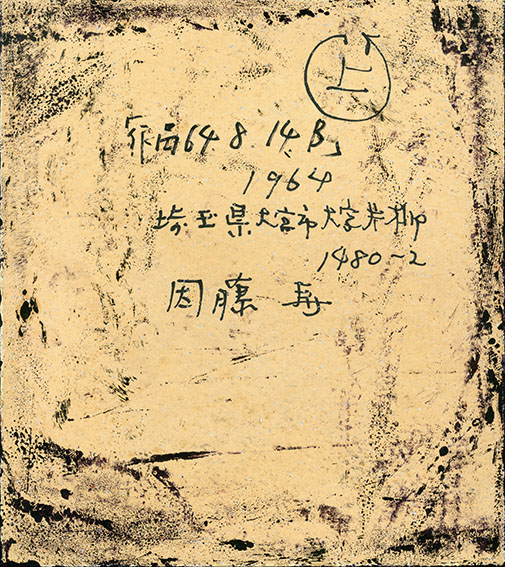 上
「作品64.8.14.B」
1964
埼玉県大宮市大字片柳
1480~2
因藤 寿